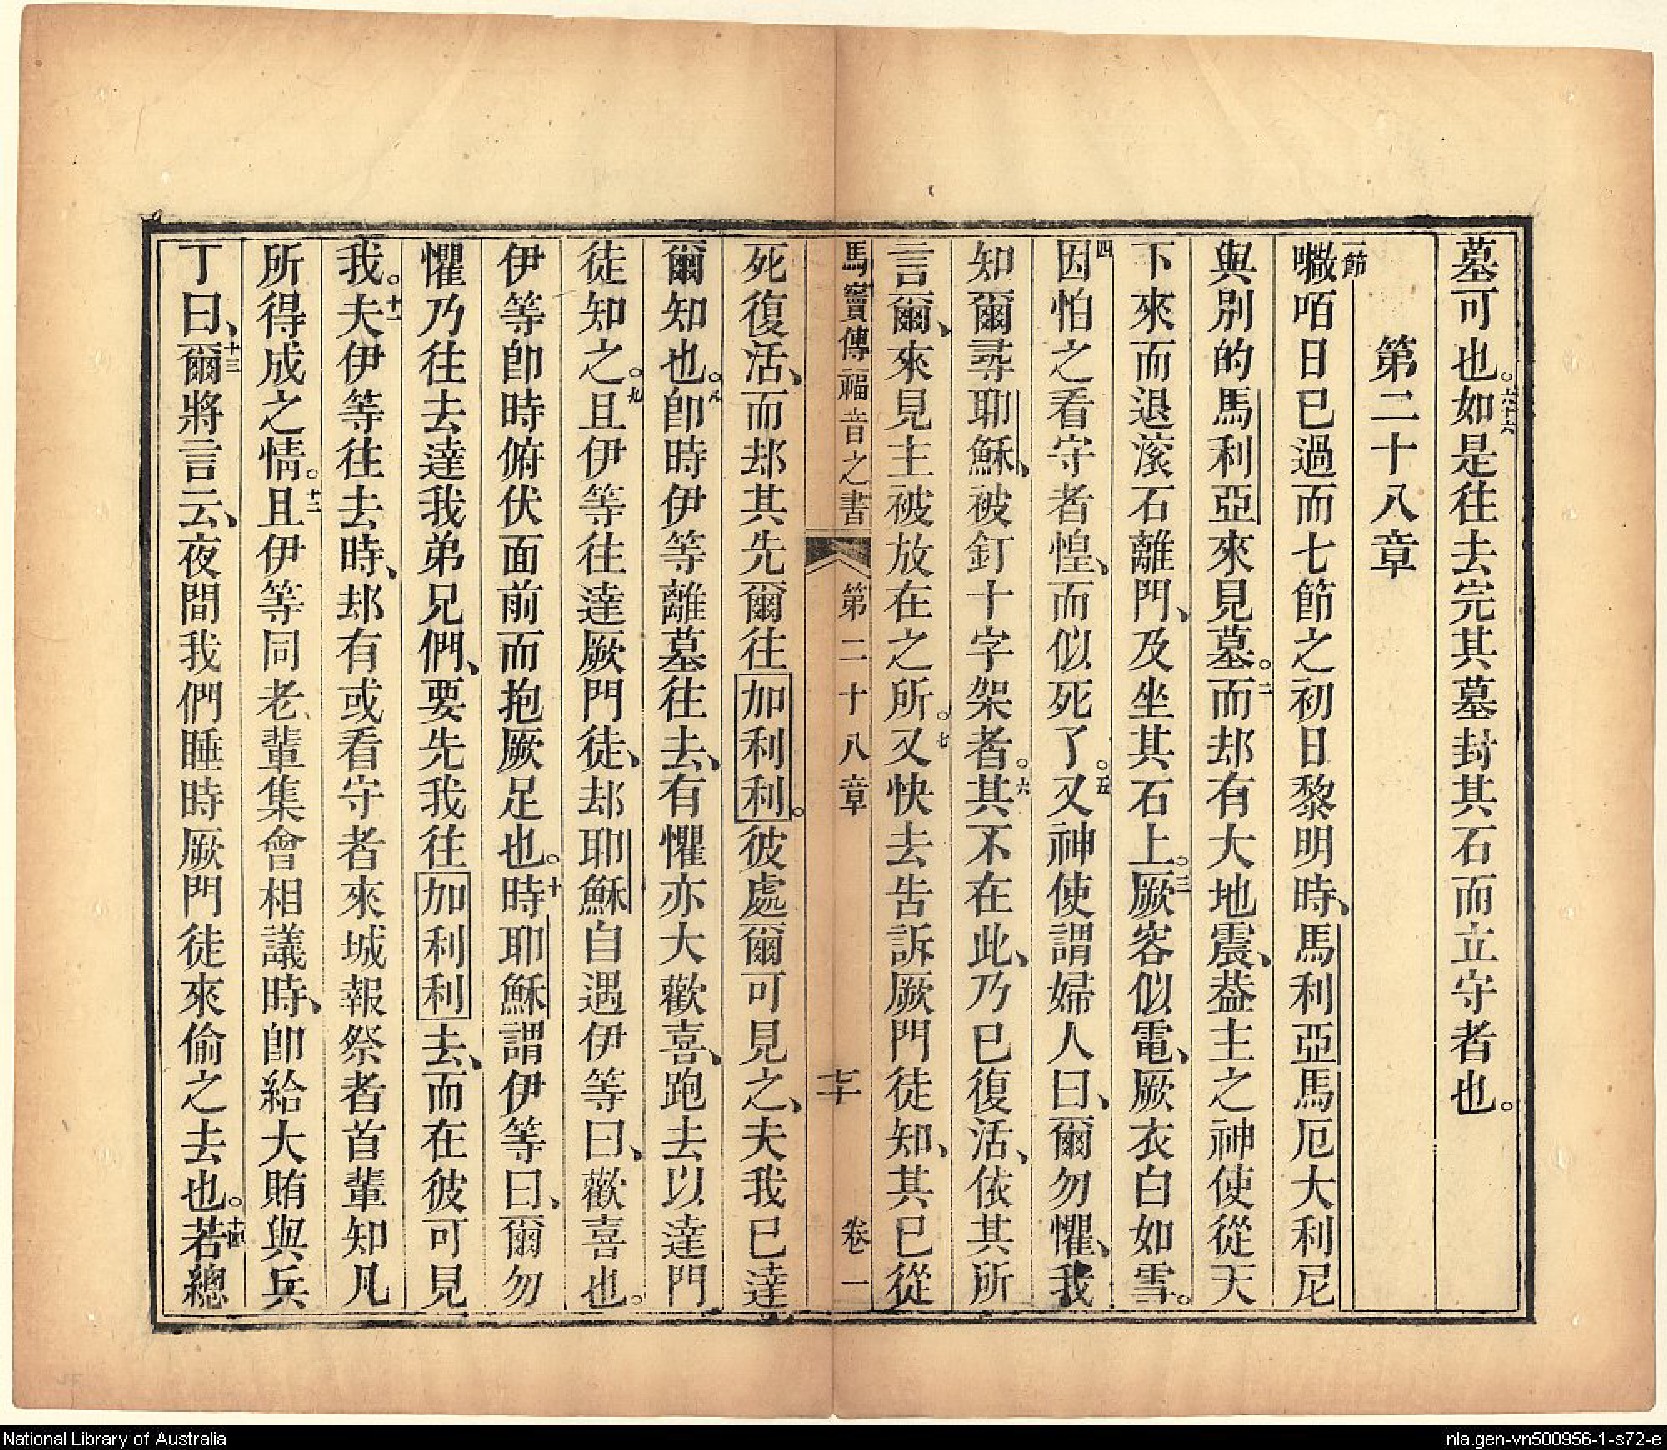 墓可也。六十六如是往去完其墓封其石而立守者也。
第二十八章
一節嚫咟日已過而七節之初日黎明時、馬利亞馬厄大利尼
與別的馬利亞來見墓。二而却有大地震、葢主之神使從天
下來而退滚石離門、及坐其石上。三厥容似電、厥衣白如雪。
四因怕之看守者惶、而似死了。五又神使謂婦人曰、爾勿懼、我
知爾尋耶穌、被釘十字架者。六其不在此、乃已復活、依其所
言爾、來見主被放在之所。七又快去告訴厥門徒知、其已從
馬竇傳福音之書 第二十八章 七十 卷一
死復活、而却其先爾往加利利。彼處爾可見之、夫我已達
爾知也。八卽時伊等離墓往去、有懼亦大歡喜、跑去以達門
徒知之。九且伊等往達厥門徒、却耶穌自遇伊等曰、歡喜也。
伊等卽時俯伏面前而抱厥足也。十時耶穌謂伊等曰、爾勿
懼乃往去達我弟兄們、要先我往加利利去、而在彼可見
我。十一夫伊等往去時、却有或看守者來城報祭者首輩知凡
所得成之情。十二且伊等同老輩集會相議時、卽給大賄與兵
丁曰、十三爾將言云、夜間我們睡時厥門徒來偷之去也。十四若總
National Library of Australia
nla.gen-vn500956-1-s72-e